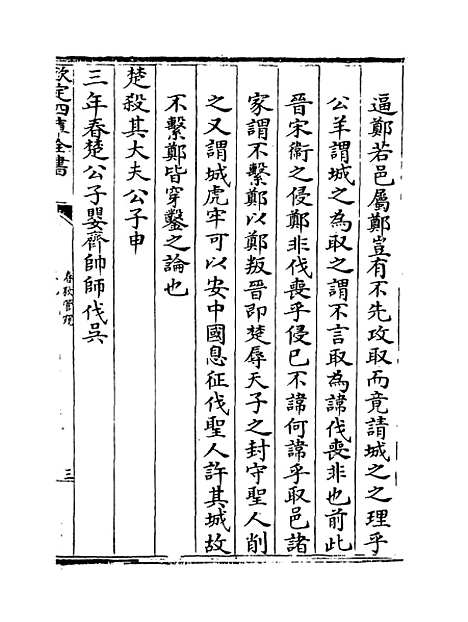 逼鄭若邑屬鄭豈有不先攻取而竟請城之之理乎
公羊謂城之為取之謂不言取為諱伐喪非也前此
晉宋衛之侵鄭非伐喪乎侵已不諱何諱乎取邑諸
家謂不繫鄭以鄭叛晉即楚辱天子之封守聖人削
之又謂城虎牢可以安中國息征伐聖人許其城故
不繫鄭皆穿鑿之論也
楚殺其大夫公子申
三年春楚公子嬰齊帥師伐吳
欽定四庫全書
春秋管窺
三